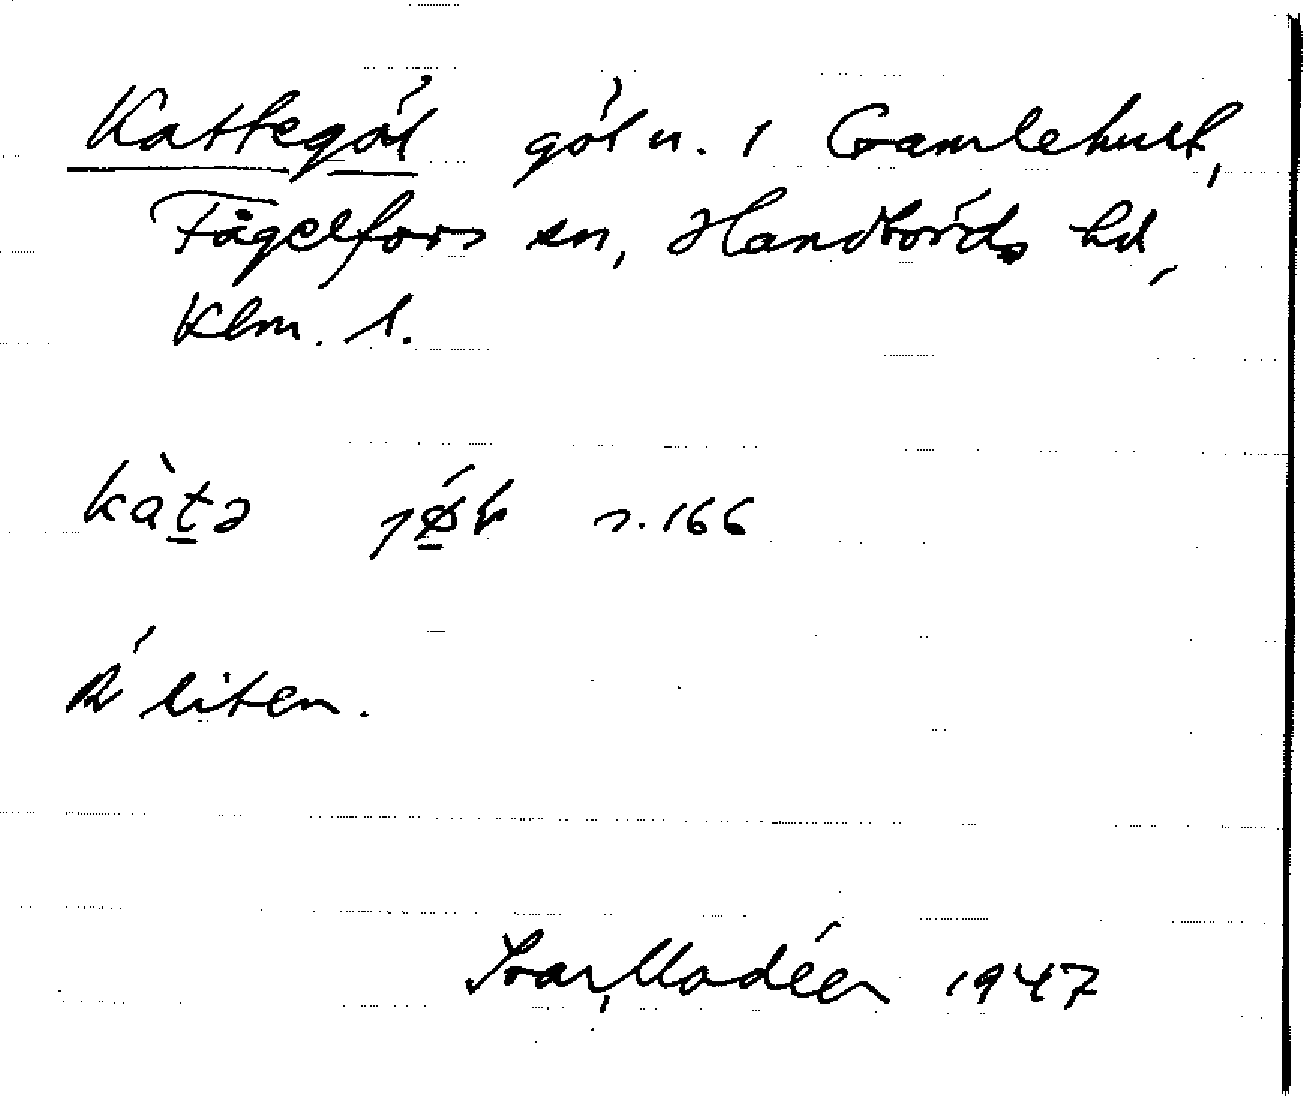 Kattegöl göl n. i Gamlehult,
Fågelfors sn, Handbörds hd,
Klm. l.
kàtə s. 166
Ä liten.
Ivar Modéer 1947